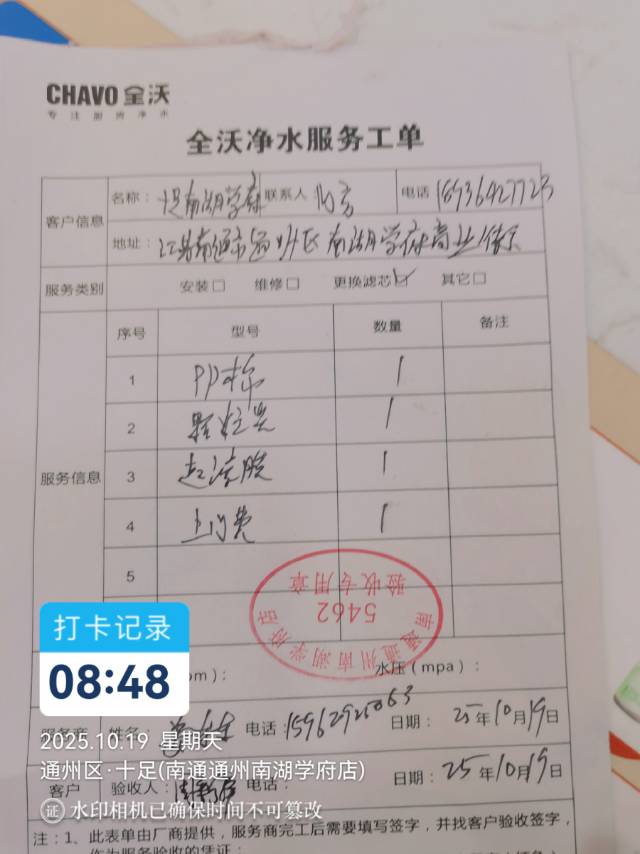 CHAVO 全沃
专注厨房净水
全沃净水服务工单
客户信息
名称： 南湖学府 联系人 电话
地址： 江苏南通市通州区南湖学府商业街
服务类别 安装□ 维修□ 更换滤芯☑ 其它□
服务信息
序号 型号 数量 备注
1 PP棉 1
2 颗粒炭 1
3 超滤膜 1
4 上门费 1
5
南通通州南湖学府店
5462
验收专用章
打卡记录
08:48
pm）： 水压（mpa）：
服务商 姓名 电话 日期： 25年10月19日
2025.10.19 星期天
通州区·十足(南通通州南湖学府店)
客户 验收人： 电话： 日期： 25年10月19日
证 水印相机已确保时间不可篡改
注：1、此表单由厂商提供，服务商完工后需要填写签字，并找客户验收签字，
作为服务验收的凭证；